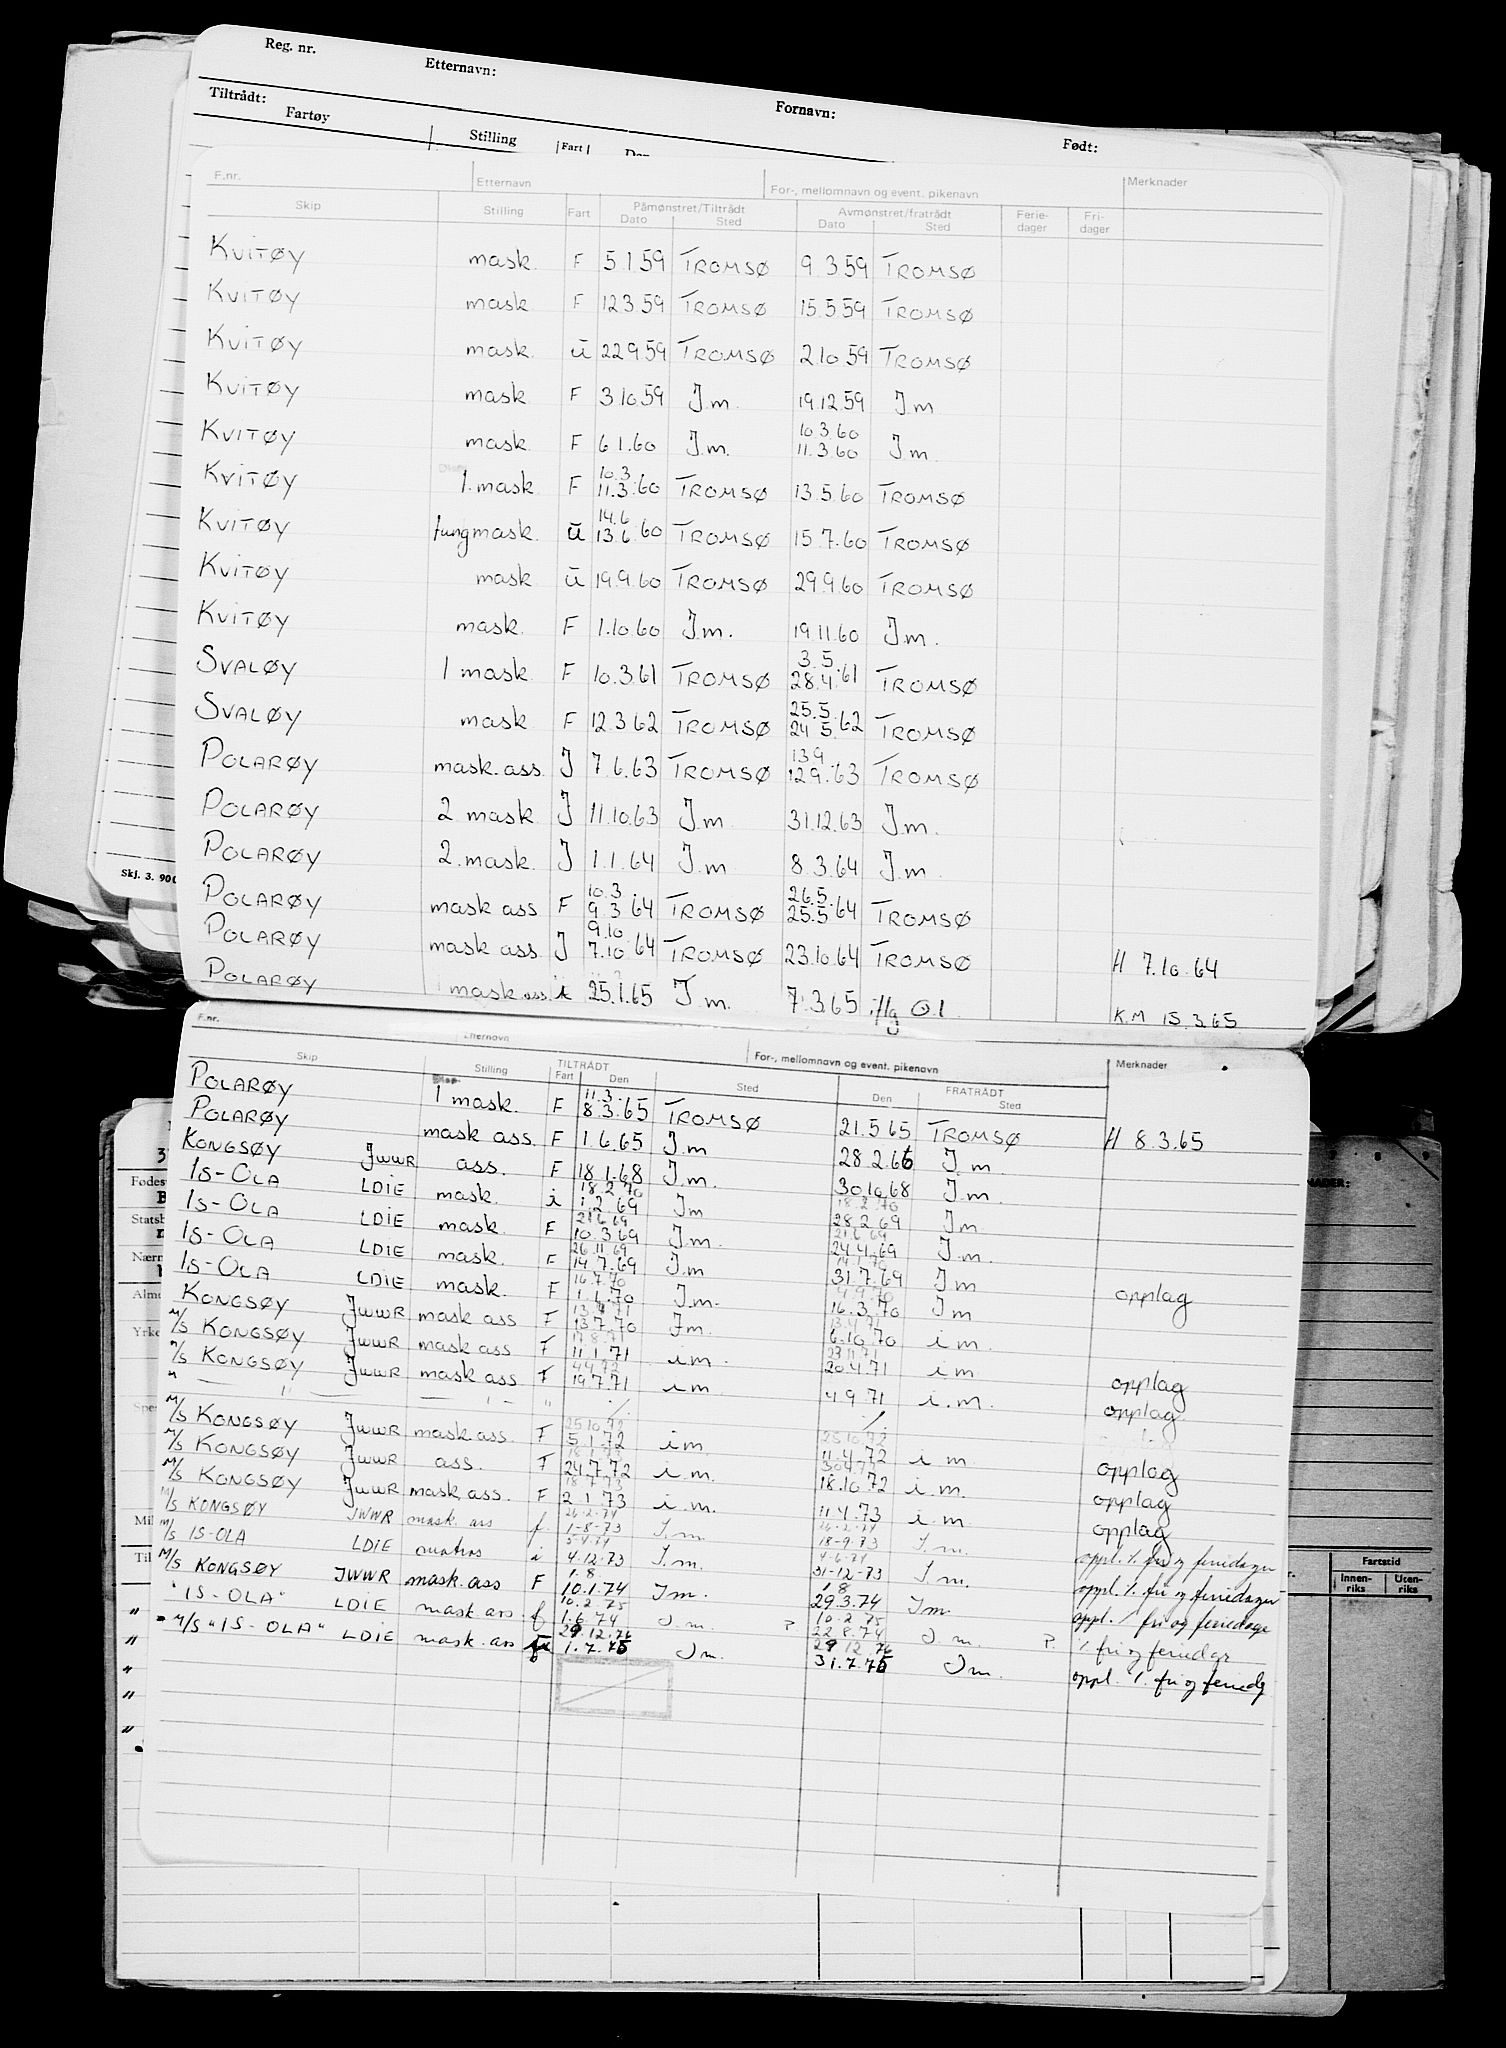 Reg. nr. Etternavn: Fornavn: Født:
Tiltrådt: Fartøy Stilling Fart
F.nr. Etternavn For-, mellomnavn og event. pikenavn Merknader
Skip Stilling Fart Påmønstret/Tiltrådt Dato Sted Avmønstret/fratrådt Dato Sted Ferie-dager Fri-dager
KVITØY mask. F 5.1.59 TROMSØ 9.3.59 TROMSØ
KVITØY mask F 12.3.59 TROMSØ 15.5.59 TROMSØ
KVITØY mask. u 22.9.59 TROMSØ 2.10.59 TROMSØ
KVITØY mask F 3.10.59 J.m. 19.12.59 J.m
KVITØY mask F 6.1.60 J.m. 10.3.60 11.3.60 J.m.
KVITØY 1.mask F 10.3 11.3.60 TROMSØ 13.5.60 TROMSØ
KVITØY fung mask. u 14.6 13.6.60 TROMSØ 15.7.60 TROMSØ
KVITØY mask u 19.9.60 TROMSØ 29.9.60 TROMSØ
KVITØY mask. F 1.10.60 J.m. 19.11.60 J.m.
SVALØY 1 mask F 10.3.61 TROMSØ 3.5. 28.4.61 TROMSØ
SVALØY mask F 12.3.62 TROMSØ 25.5. 24.5.62 TROMSØ
POLARØY mask.ass. J 7.6.63 TROMSØ 13.9 12.9.63 TROMSØ
POLARØY 2 mask J 11.10.63 J.m 31.12.63 J.m.
POLARØY 2.mask. J 1.1.64 J.m 8.3.64 J.m.
POLARØY mask ass F 10.3. 9.3.64 TROMSØ 26.5. 25.5.64 TROMSØ
POLARØY mask ass. J 9.10 7.10.64 TROMSØ 23.10.64 TROMSØ H 7.10.64
POLARØY mask ass. i 25.1.65 J.m. 7.3.65 K.M 15.3.65
Skj. 3. 900
F.nr. Etternavn For-, mellomnavn og event. pikenavn Merknader
Skip Stilling TILTRÅDT Fart Den Sted FRATRÅDT Den Sted
POLARØY 1 mask. F 11.3. 8.3.65 TROMSØ 21.5.65 TROMSØ H 8.3.65
POLARØY mask ass. F 1.6.65 J.m 28.2.66 J.m.
KONGSØY JWWR ass. F 18.1.68 J.m. 30.10.68 J.m.
IS-OLA LDIE mask. i 18.2.70 1.2.69 Jm 18.2.70 28.2.69 Jm
IS-OLA LDIE mask. F 21.6.69 10.3.69 J.m. 21.6.69 24.4.69 J.m.
IS-OLA LDIE mask. F 26.11.69 14.7.69 J.m 31.7.69 Jm
IS-OLA LDIE mask. F 16.7.70 1.1.70 J.m. 16.3.70 Jm opplag
KONGSØY JWWR mask ass F 13.7.70 Jm. 13.4.71 6.10.70 i m.
M/S KONGSØY JWWR mask ass F 17.8.71 11.1.71 im. 23.11.71 20.4.71 i m
M/S KONGSØY JWWR mask ass. F 4.4.72 19.7.71 im. 4.9.71 i.m. opplag
" — " — — " — " ./. ./. opplag
M/S KONGSØY JWWR mask ass. F 25.10.72 5.1.72 im. 25.10.72 11.4.72 i m
M/S KONGSØY JWWR ass. F 24.7.72 i m. 18.10.72 i.m. opplag
M/S KONGSØY JWWR mask.ass. F 2.1.73 i.m. 11.4.73 i.m. opplag
M/S KONGSØY JWWR mask ass f. 26.2.74 1-8-73 I.m. 26.2.74 18-9-73 I.m. opplag
M/S IS-OLA LDIE i 5.4.74 4.12.73 I.m. 4.6.74 31-12-73 I m. oppl. ÷ fri og feriedager
M/S KONGSØY JWWR mask.ass F 1.8 10.1.74 Im 1.8 29.3.74 Im oppl. ÷ fri og feriedager
"IS-OLA" LDIE mask.ass. f 10.2.75 1.6.74 I.m. P. 10.2.75 22.8.74 I.m. P. oppl. ÷ fri og feriedage
M/S "IS-OLA" LDIE mask.ass 29.12.76 1.7.75 Im. 29.12.76 31.7.75 Im. ÷ fri og feriedgr
oppl. ÷ fri og feriedg
"
"
"
"
"
Fødes
Statsb
Nærm
Alme
Yrke
Spes
Mil
Til
NADER:
Fartstid
Innen-riks Uten-riks